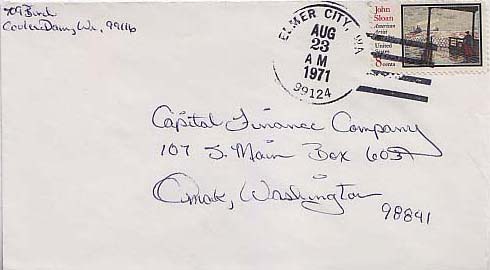 709 Birch
Coulee Dam, Wn., 99116
ELMER CITY, WA
AUG
23
AM
1971
99124
John
Sloan
American
Artist
United
States
8 cents
Capital Finance Company
107 S. Main Box 603
Omak, Washington
98841